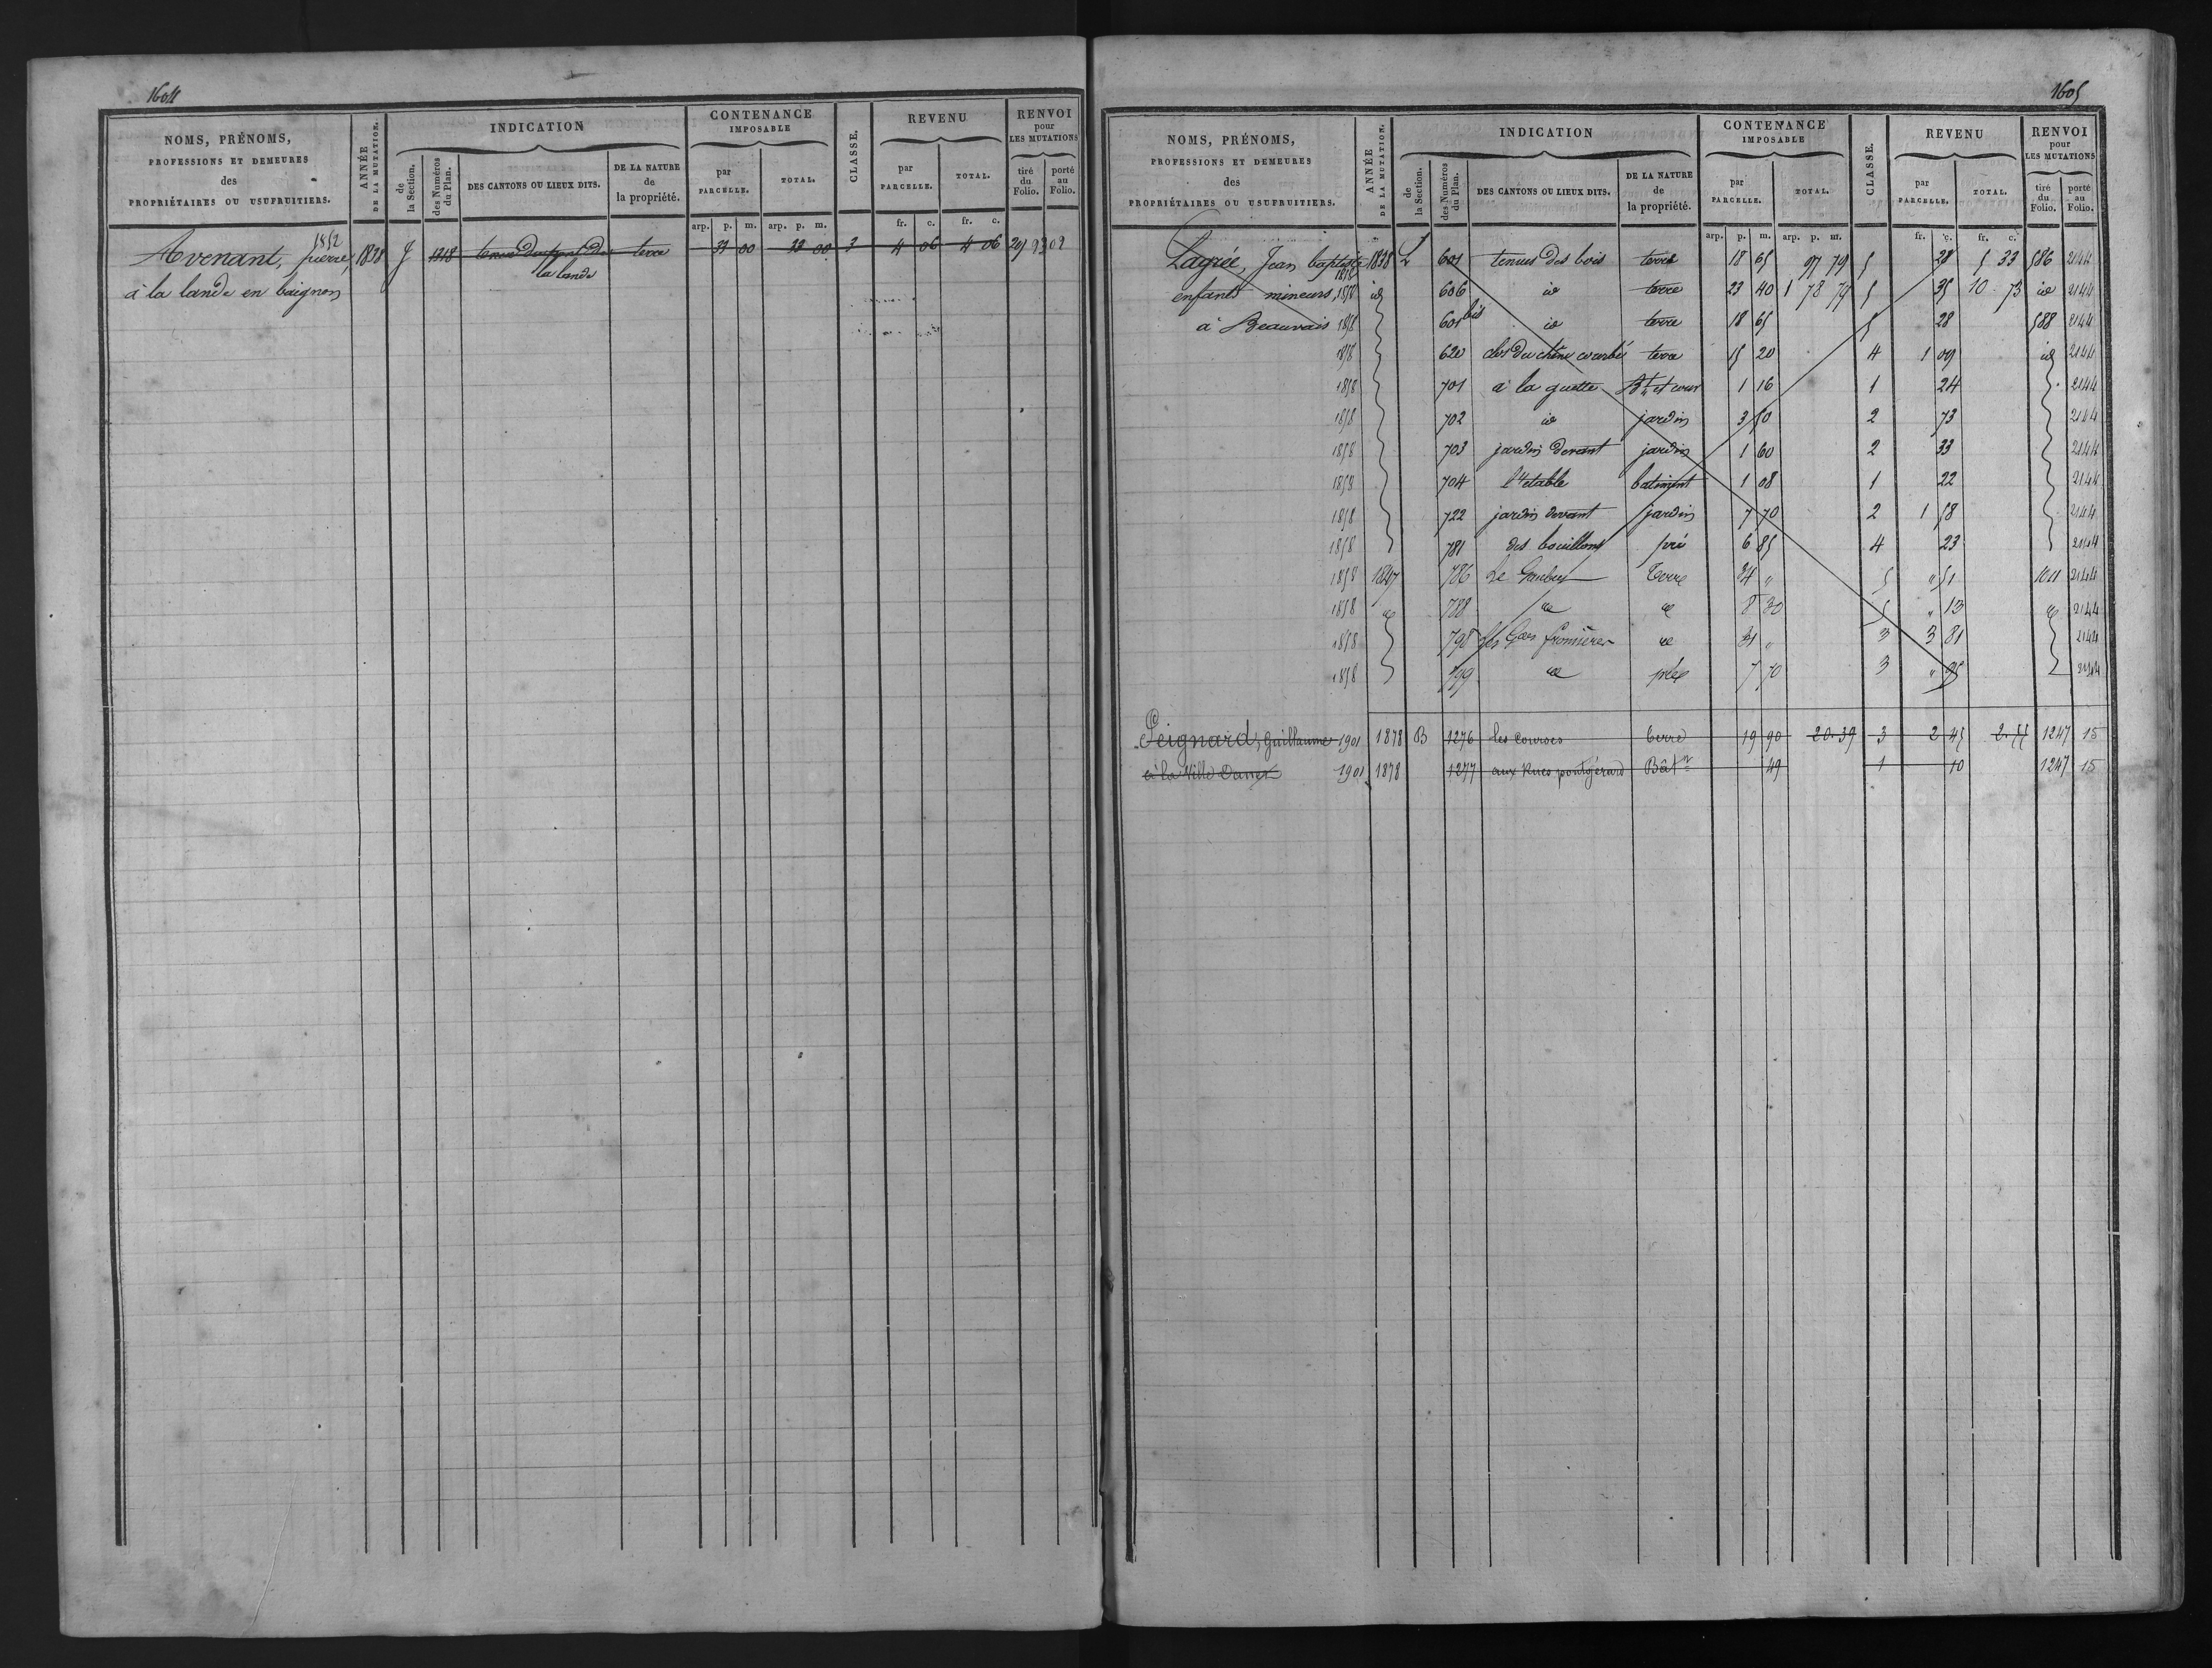 1604
NOMS, PRÉNOMS,
PROFESSIONS ET DEMEURES
des
PROPRIÉTAIRES OU USUFRUITIERS.
ANNÉE
DE LA MUTATION.
INDICATION
de
la Section.
des Numéros
du Plan.
DES CANTONS OU LIEUX DITS.
DE LA NATURE
de
la propriété.
CONTENANCE
IMPOSABLE
par
PARCELLE.
TOTAL.
arp. p. m. arp. p. m.
CLASSE.
REVENU
par
PARCELLE.
TOTAL.
fr. c. fr. c.
RENVOI
pour
LES MUTATIONS
tiré
du
Folio.
porté
au
Folio.
1852
Avenant, pierre, 1838 1318 terre 33 00 33 00 3 4 06 4 06
la lande
à la lande en baignon
1605
NOMS, PRÉNOMS,
PROFESSIONS ET DEMEURES
des
PROPRIÉTAIRES OU USUFRUITIERS.
ANNÉE
DE LA MUTATION.
INDICATION
de
la Section.
des Numéros
du Plan.
DES CANTONS OU LIEUX DITS.
DE LA NATURE
de
la propriété.
CONTENANCE
IMPOSABLE
par
PARCELLE.
TOTAL.
arp. p. m. arp. p. m.
CLASSE.
REVENU
par
PARCELLE.
TOTAL.
fr. c. fr. c.
RENVOI
pour
LES MUTATIONS
tiré
du
Folio.
porté
au
Folio.
Lagrée, Jean baptiste 1838 L 601 tenues des bois terre 18 65 97 79 5 28 5 33 586 2144
enfants mineurs, 1858 id 606 id terre 23 40 1 78 79 5 35 10 73 id 2144
à Beauvais 1858 601 bis id terre 18 65 5 28 588 2144
1858 620 clos du chêne courbé terre 15 20 4 1 09 id 2144
1858 701 à la guette Bt et cour 1 16 1 24 2144
1858 702 id jardin 3 50 2 73 2144
1858 703 jardin devant jardin 1 60 2 33 2144
1858 704 l'étable batiment 1 08 1 22 2144
1858 722 jardin devant jardin 7 70 2 1 58 2144
1858 781 des bouillons pré 6 85 4 23 2144
1858 1847 786 Le terre 34 " 5 " 51 1011 2144
1858 id 788 id id 8 30 5 " 13 id 2144
1858 798 les fromières id 31 " 3 3 81 2144
1858 799 id pré 7 70 3 " 95 2144
Peignard, Guillaume 1901 1878 B 1276 les courses terre 19 90 20.39 3 2 45 2.55 1247 15
à la Ville 1901 1878 1277 aux Rues Bâtnt 49 1 10 1247 15